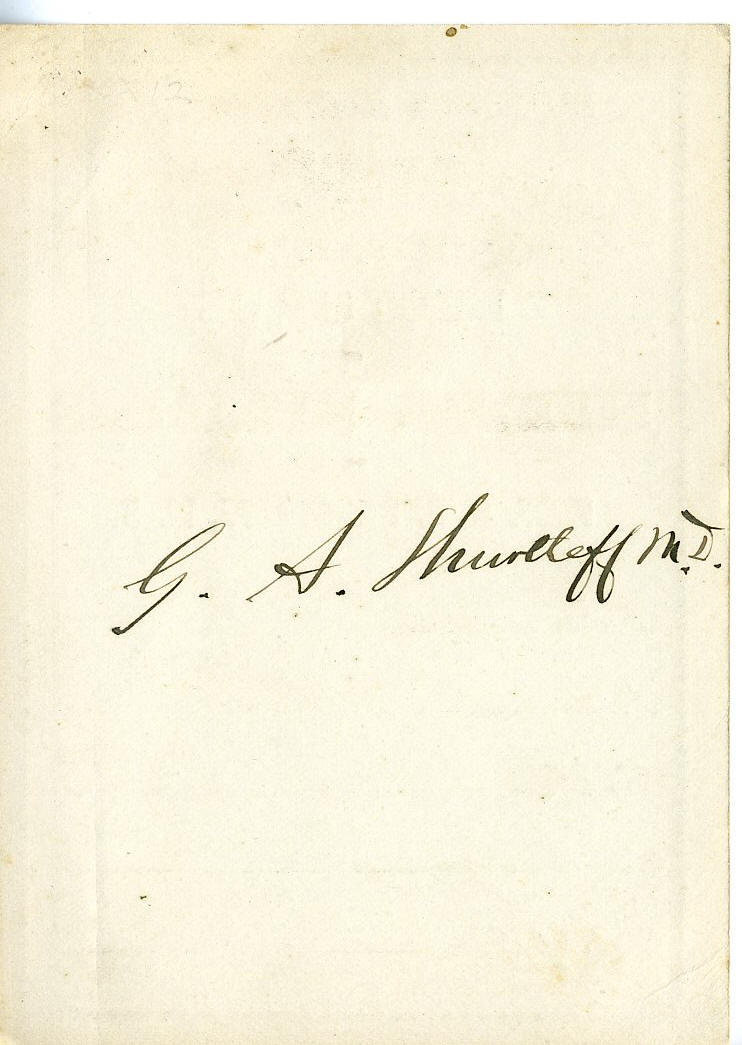 G. A. Shurtleff M.D.